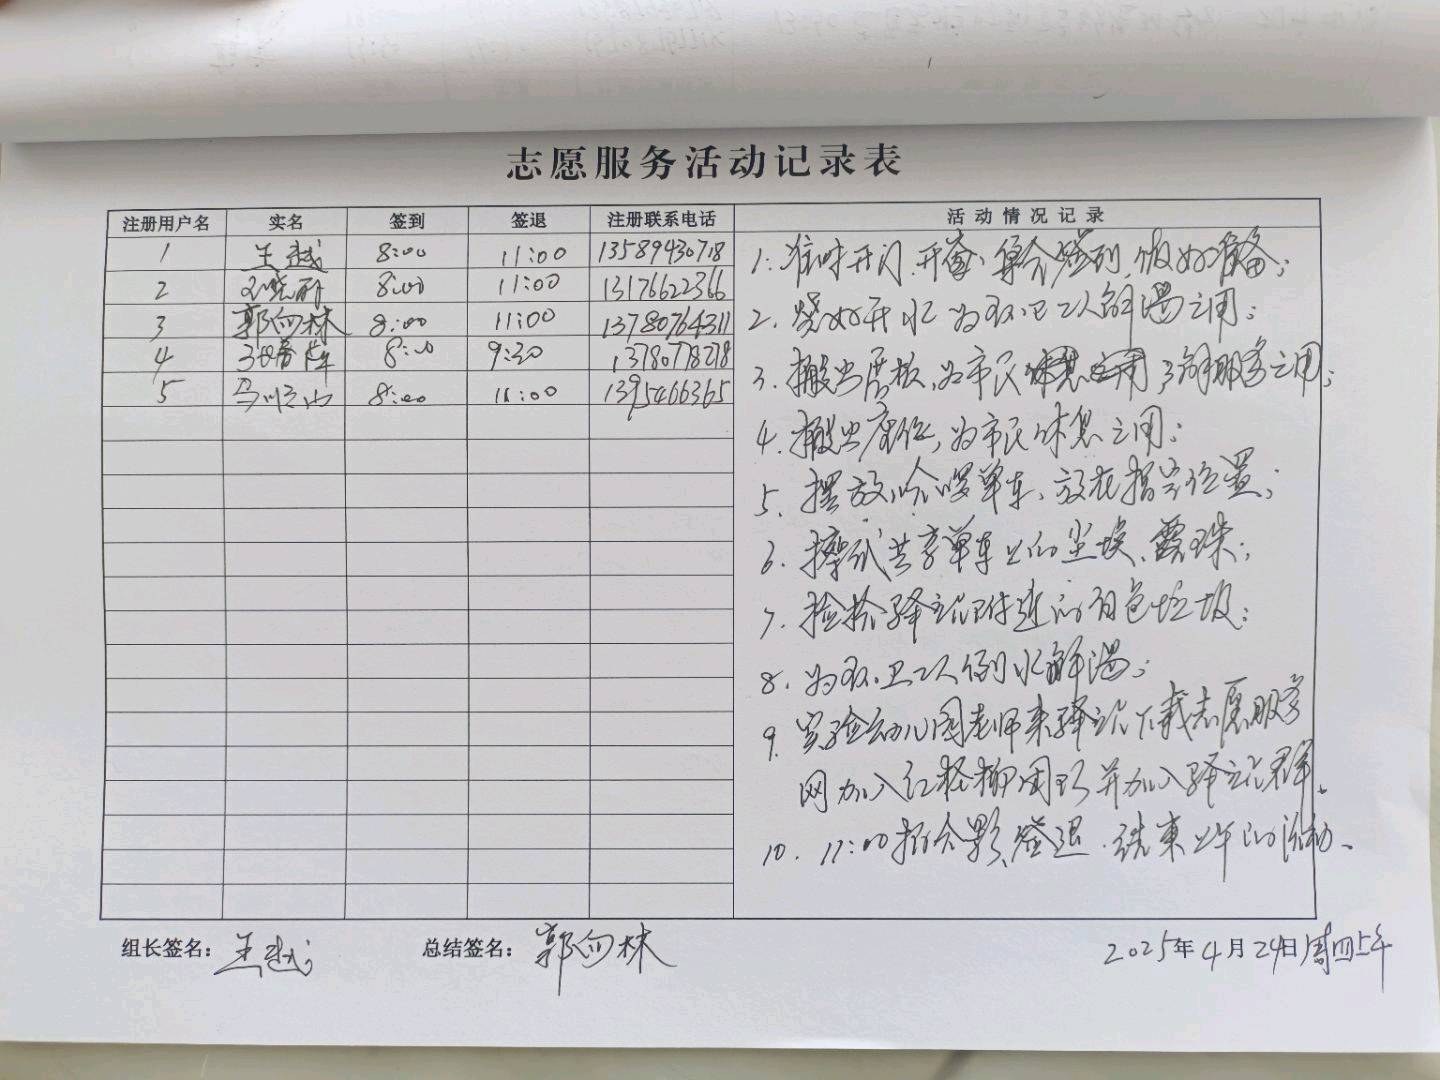 志愿服务活动记录表
注册用户名 实名 签到 签退 注册联系电话 活动情况记录
1 王越 8:00 11:00 13589430718
2 8:00 11:00 13176622366
3 郭向林 8:00 11:00 13780764311
4 8:00 9:30 13780778278
5 8:00 11:00 1395466365
1. 准时开门、开窗、集合签到,做好准备;
2. 烧好开水为环卫工人解渴之用;
3. 搬出展板,为市民了解服务之用;
4. 搬出座位,为市民休息之用;
5. 摆放哈啰单车,放在指定位置;
6. 擦拭共享单车上的尘埃、露珠;
7. 捡拾驿站附近的白色垃圾;
8. 为环卫工人倒水解渴;
9. 实验幼儿园老师来驿站下载志愿服务
网加入红柽柳团队并加入驿站群。
10. 11:00拍合影,签退.结束上午的活动、
组长签名: 王越 总结签名: 郭向林 2025年4月24日周四上午